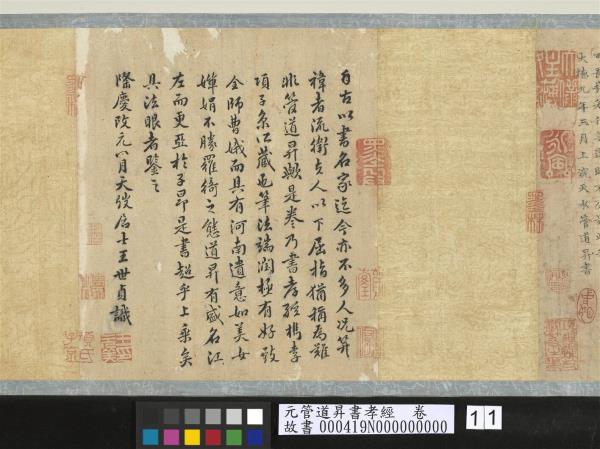 大德九年三月上浣天水管道昇書
自古以書名家迄今亦不多人况筓
褘者流衛夫人以下屈指猶稱為難
非管道昇歟是卷乃書孝經檇李
項子京所藏也筆法端潤極有好致
全師曹娥而具有河南遺意如美女
嬋娟不勝羅綺之態道昇有盛名江
左而更亞於子昂是書超乎上乘矣
具法眼者鑒之
隆慶改元八月天弢居士王世貞識
元管道昇書孝經 卷
故書 000419N000000000
11